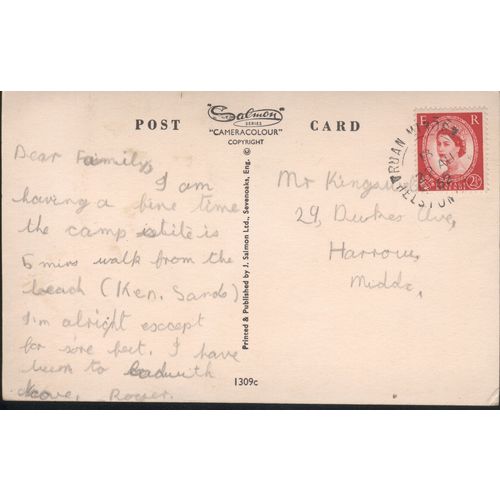 "Salmon"
SERIES
"CAMERACOLOUR"
COPYRIGHT
POST CARD
©
Printed & Published by J. Salmon Ltd., Sevenoaks, Eng.
1309c
E R
2½
RUAN
HELSTON
Dear Family,
I am
having a fine time
the camp site is
5 mins walk from the
beach (Ken. Sands)
I'm alright escept
for sore feet. I have
to
love, Roger.
Mr
29, Dukes Ave,
Harrow,
Middx,